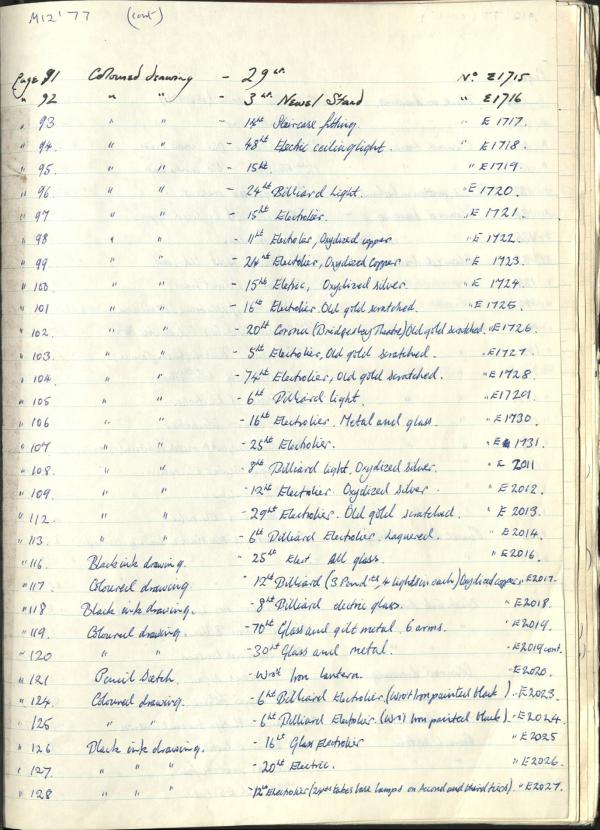 M12'77 (cont)
Page 91 Coloured drawing - 29 Lt. No E1715
" 92 " " - 3 Lt. Newel Stand " E1716
" 93 " " - 14Lt Staircase fitting. " E1717.
" 94 " " - 48Lt Electric ceiling light. " E1718.
" 95 " " - 15Lt. " E1719.
" 96 " " - 24Lt Billiard Light. " E1720.
" 97 " " - 15Lt Electrolier. " E1721.
" 98 " " - 11Lt Electrolier, Oxydized copper " E1722.
" 99 " " - 24Lt Electolier, Oxydized Copper " E1723.
" 100 " " - 15Lt Eletric, Oxydized silver. " E1724.
" 101 " " - 16Lt Electrolier. Old gold scratched. " E1725.
" 102. " " - 20Lt Corona (Bridgesbay Theatre) Old gold scratched. " E1726.
" 103. " " - 5Lt Electrolier, Old gold scratched. " E1727.
" 104. " " - 74Lt Electrolier, Old gold scratched. " E1728.
" 105 " " - 6Lt Billiard light. " E1729.
" 106 " " - 16Lt Electrolier. Metal and glass. " E1730.
" 107 " " - 25Lt Electrolier. " E1731.
" 108. " " - 8Lt Billiard light. Oxydized silver. " E 2011
" 109. " " - 12Lt Electolier. Oxydized silver. " E2012.
" 112. " " - 29Lt Electrolier. Old gold scratched. " E 2013.
" 113. " " - 6Lt Billiard Electrolier. Laquered. " E2014.
" 116. Black ink drawing. - 25Lt Elect. All glass. " E2016.
" 117. Coloured drawing. - 12Lt Billiard (3 Pendts, 4 lights in each) Oxydized copper " E2017.
" 118 Black ink drawing. - 8Lt Billiard electric glass. " E2018.
" 119. Coloured drawing. - 70Lt Glass and gilt metal. 6 arms. " E2019.
" 120 " " - 30Lt Glass and metal. " E2019 cont.
" 121 Pencil Sketch. - Wrot Iron lantern. " E2020.
" 124. Coloured drawing. - 6Lt Billiard Electrolier (Wrot Iron painted black). " E2023.
" 125 " " - 6Lt Billiard Electolier. (Wrot Iron painted black). " E2024.
" 126 Black ink drawing. - 16Lt Glass Electrolier " E2025
" 127. " " - 20Lt Electric. " E2026.
" 128 " " - Electrolier lamps on second and third tiers). " E2027.